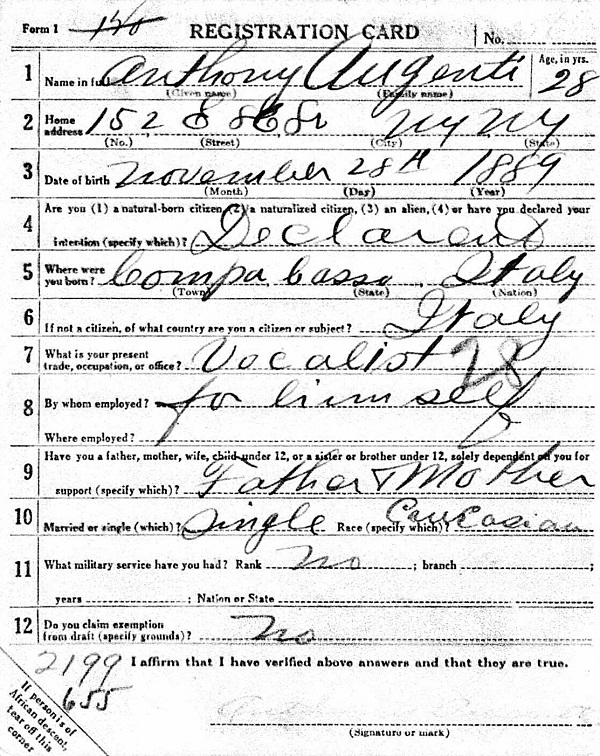 Form 1 120 REGISTRATION CARD No.
1 Name in full Anthony Augenti Age, in yrs. 28
(Given name) (Family name)
2 Home address 152 E 8 St NY NY
(No.) (Street) (City) (State)
3 Date of birth November 28th 1889
(Month) (Day) (Year)
4 Are you (1) a natural-born citizen, (2) a naturalized citizen, (3) an alien, (4) or have you declared your
intention (specify which)? Declarent
5 Where were you born? Compabasso, Italy
(Town) (State) (Nation)
6 If not a citizen, of what country are you a citizen or subject? Italy
7 What is your present trade, occupation, or office? Vocalist 28
8 By whom employed? for himself
Where employed?
9 Have you a father, mother, wife, child under 12, or a sister or brother under 12, solely dependent on you for
support (specify which)? Father & Mother
10 Married or single (which)? Single Race (specify which)? Caucasian
11 What military service have you had? Rank no ; branch ;
years ; Nation or State
12 Do you claim exemption from draft (specify grounds)? no
2199
655
I affirm that I have verified above answers and that they are true.
(Signature or mark)
If person is of
African descent,
tear off this
corner